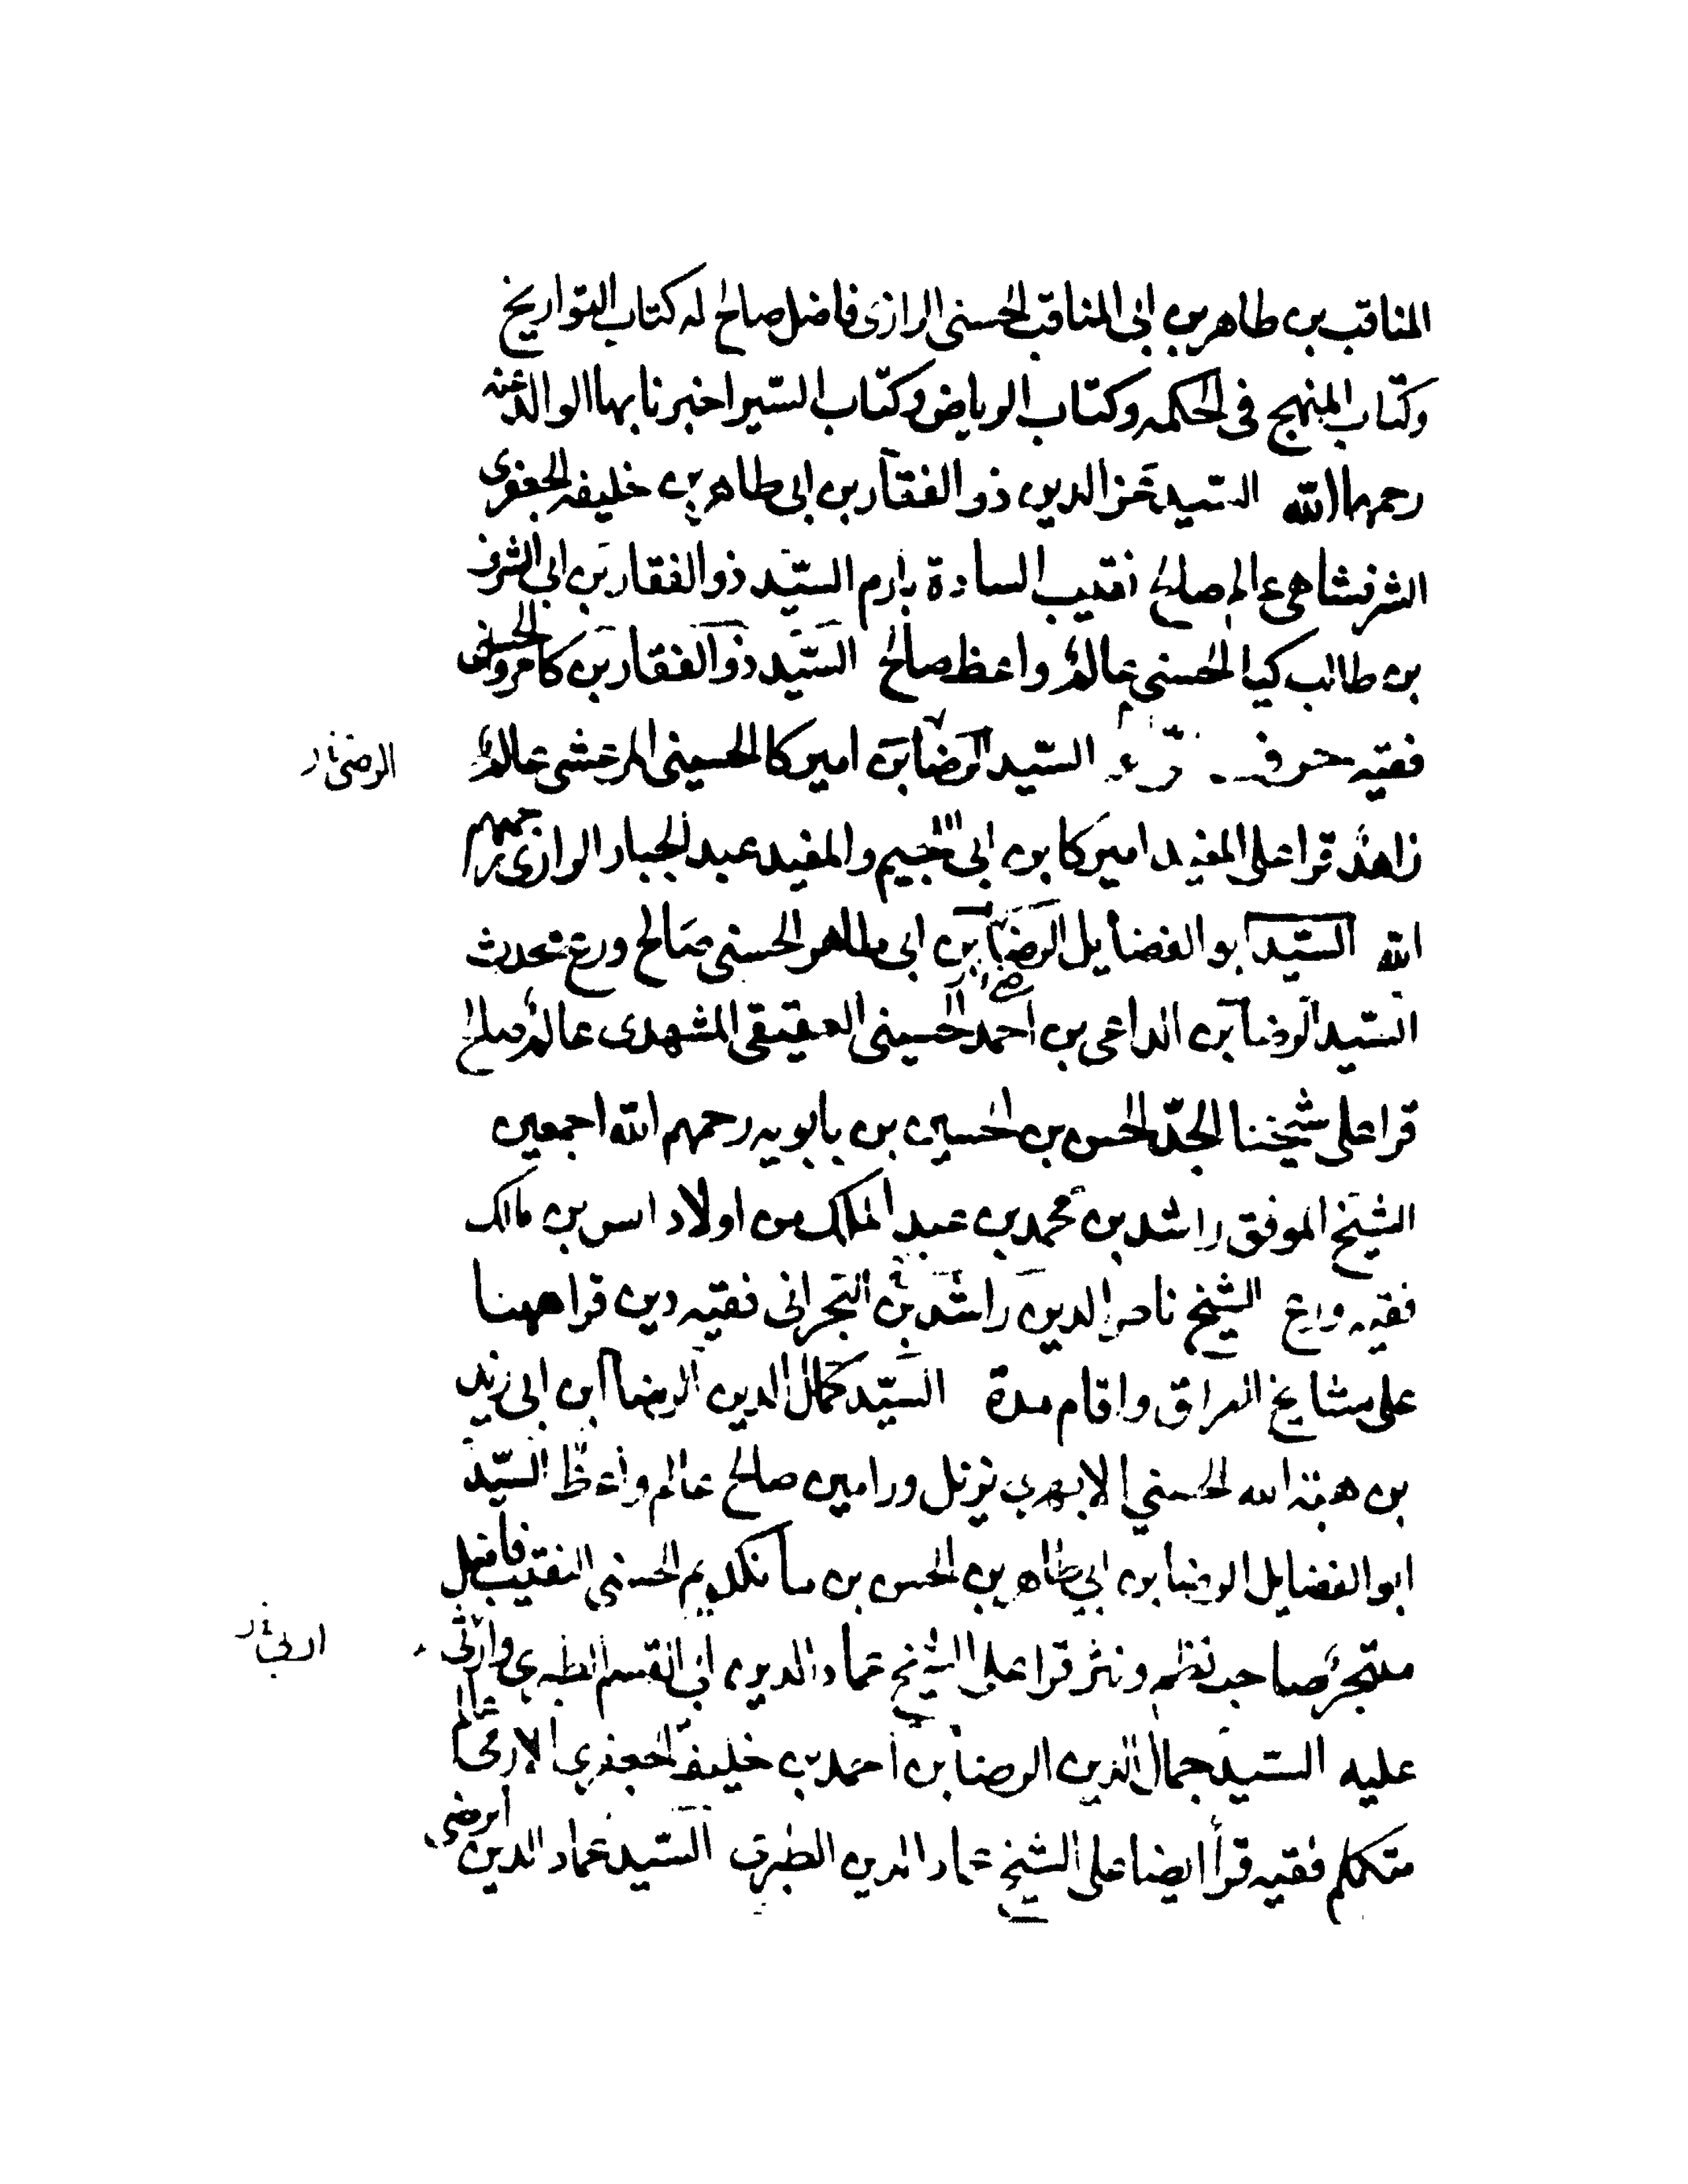 المناقب بن طاهر بن ابى المناقب الحسنى الرازى فاضل صالح له كتاب التواريخ
وكتاب المنهج فى الحكمه وكتاب الرياض وكتاب السير اخبرنا بها الوالد عنه
رحمهما الله السيد عز الدين ذو الفقار بن ابى طاهر بن خليفه الجعفرى
الشرفشاهى عالم صالح نقيب السادة بارم السيد ذو الفقار بن ابى الشرف
بن طالب كيا الحسنى عالم واعظ صالح السيد ذو الفقار بن كامرو الحسنى
فقيه السيد الرضا بن اميركا الحسينى المرعشى عالم
الرضى
زاهد قرا على المفيد اميركا بن ابى اللجيم والمفيد عبد الجبار الرازى رحمهم
الله السيد ابو الفضايل الرضا بن ابى طاهر الحسنى صالح ورع محدث
السيد الرضا بن الداعى بن احمد الحسينى العقيقى المشهدى عالم صالح
قرا على شيخنا الجد الحسن بن الحسين بن بابويه رحمهم الله اجمعين
الشيخ الموفق راشد بن محمد بن عبد الملك من اولاد انس بن مالك
فقيه ورع الشيخ ناصر الدين راشد بن البحرانى فقيه دين قرا ههنا
على مشايخ العراق واقام مدة السيد كمال الدين الرضا ابن ابى زيد
بن هبة الله الحسني الابهرى نزيل ورامين صالح عالم واعظ السيد
ابو الفضايل الرضا بن ابي طاهر بن الحسن بن مانكديم الحسنى النقيب فاضل
متبحر صاحب نظم ونثر قرا على الشيخ عماد الدين ابى القسم الطبري
عليه السيد جمال الدين الرضا بن احمد بن خليفة الجعفري الارمى عالم
متكلم فقيه قرأ ايضا على الشيخ عماد الدين الطبرى السيد عماد الدين الرضى